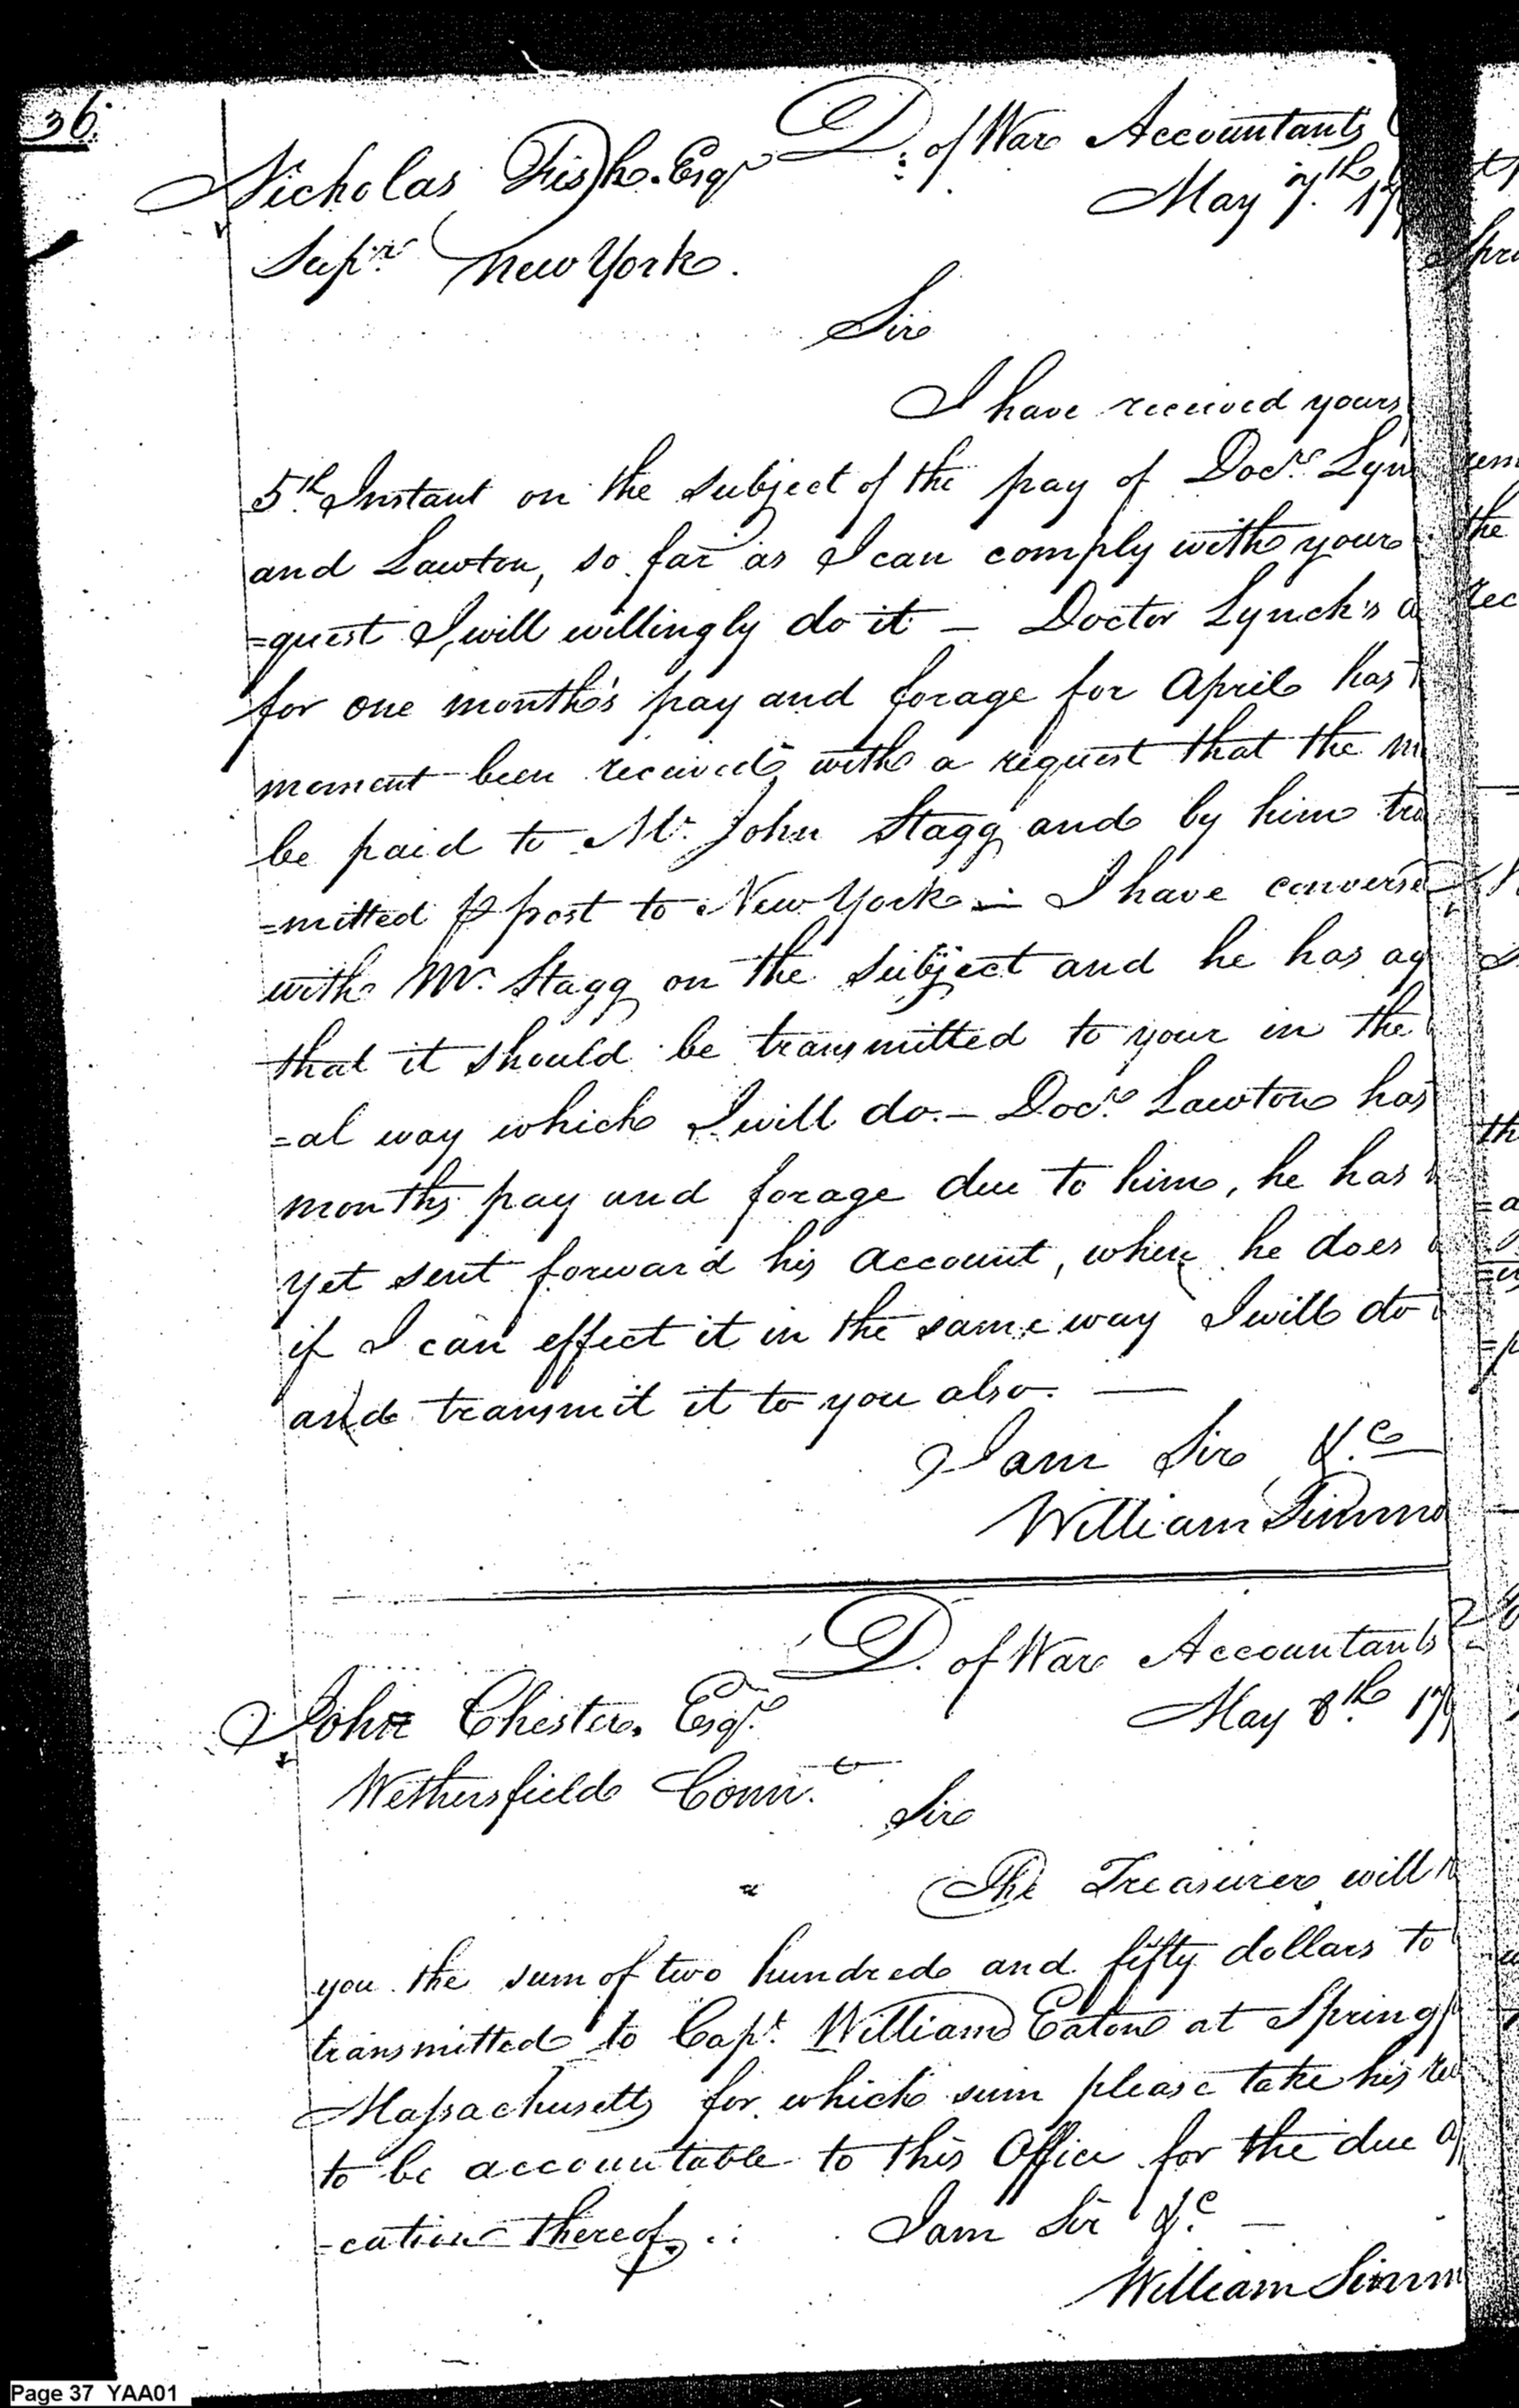 36.
D. of War Accountants
Nicholas Fish. Esqr
May 7th. 17
Supr. New York.
Sir
I have received yours
5th Instant on the subject of the pay of Docr. Lyn
and Lawton, so far as I can comply with your
=quest I will willingly do it – Doctor Lynch's a
for one month's pay and forage for April has
moment been received with a request that the m
be paid to Mr. John Stagg and by him tra
=mitted ⅌ post to New York – I have converse
with Mr. Stagg on the subject and he has ag
that it should be transmitted to your in the
=al way which I will do. – Docr. Lawton has
months pay and forage due to him, he has
yet sent forward his account, when he does
if I can effect it in the same way I will do
and transmit it to you also. —
I am Sir &c
William Simmo
D. of War Accountants
John Chester, Esqr.
May 8th. 17
Wethersfield Conn.
Sir
The Treasurer will
you the sum of two hundred and fifty dollars to
transmitted to Capt. William Eaton at Spring
Massachusetts for which sum please take his re
to be accountable to this Office for the due a
=cation thereof.
I am Sir &c –
William Simm
Page 37 YAA01